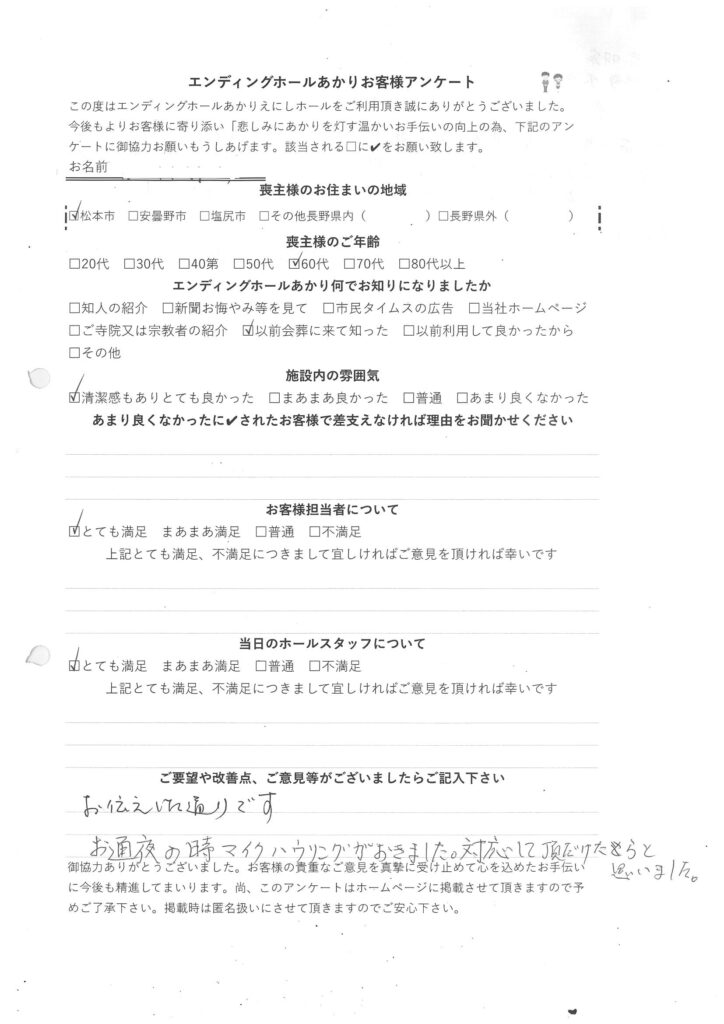 エンディングホールあかりお客様アンケート
この度はエンディングホールあかりえにしホールをご利用頂き誠にありがとうございました。
今後もよりお客様に寄り添い「悲しみにあかりを灯す温かいお手伝いの向上の為、下記のアン
ケートに御協力お願いもうしあげます。該当される□に✔をお願い致します。
お名前
喪主様のお住まいの地域
☑松本市 □安曇野市 □塩尻市 □その他長野県内（ ）□長野県外（ ）
喪主様のご年齢
□20代 □30代 □40第 □50代 ☑60代 □70代 □80代以上
エンディングホールあかり何でお知りになりましたか
□知人の紹介 □新聞お悔やみ等を見て □市民タイムスの広告 □当社ホームページ
□ご寺院又は宗教者の紹介 ☑以前会葬に来て知った □以前利用して良かったから
□その他
施設内の雰囲気
☑清潔感もありとても良かった □まあまあ良かった □普通 □あまり良くなかった
あまり良くなかったに✔されたお客様で差支えなければ理由をお聞かせください
お客様担当者について
☑とても満足 まあまあ満足 □普通 □不満足
上記とても満足、不満足につきまして宜しければご意見を頂ければ幸いです
当日のホールスタッフについて
☑とても満足 まあまあ満足 □普通 □不満足
上記とても満足、不満足につきまして宜しければご意見を頂ければ幸いです
ご要望や改善点、ご意見等がございましたらご記入下さい
お伝えした通りです
お通夜の時マイクハウリングがおきました。対応して頂だけたらと
思いました。
御協力ありがとうございました。お客様の貴重なご意見を真摯に受け止めて心を込めたお手伝い
に今後も精進してまいります。尚、このアンケートはホームページに掲載させて頂きますので予
めご了承下さい。掲載時は匿名扱いにさせて頂きますのでご安心下さい。